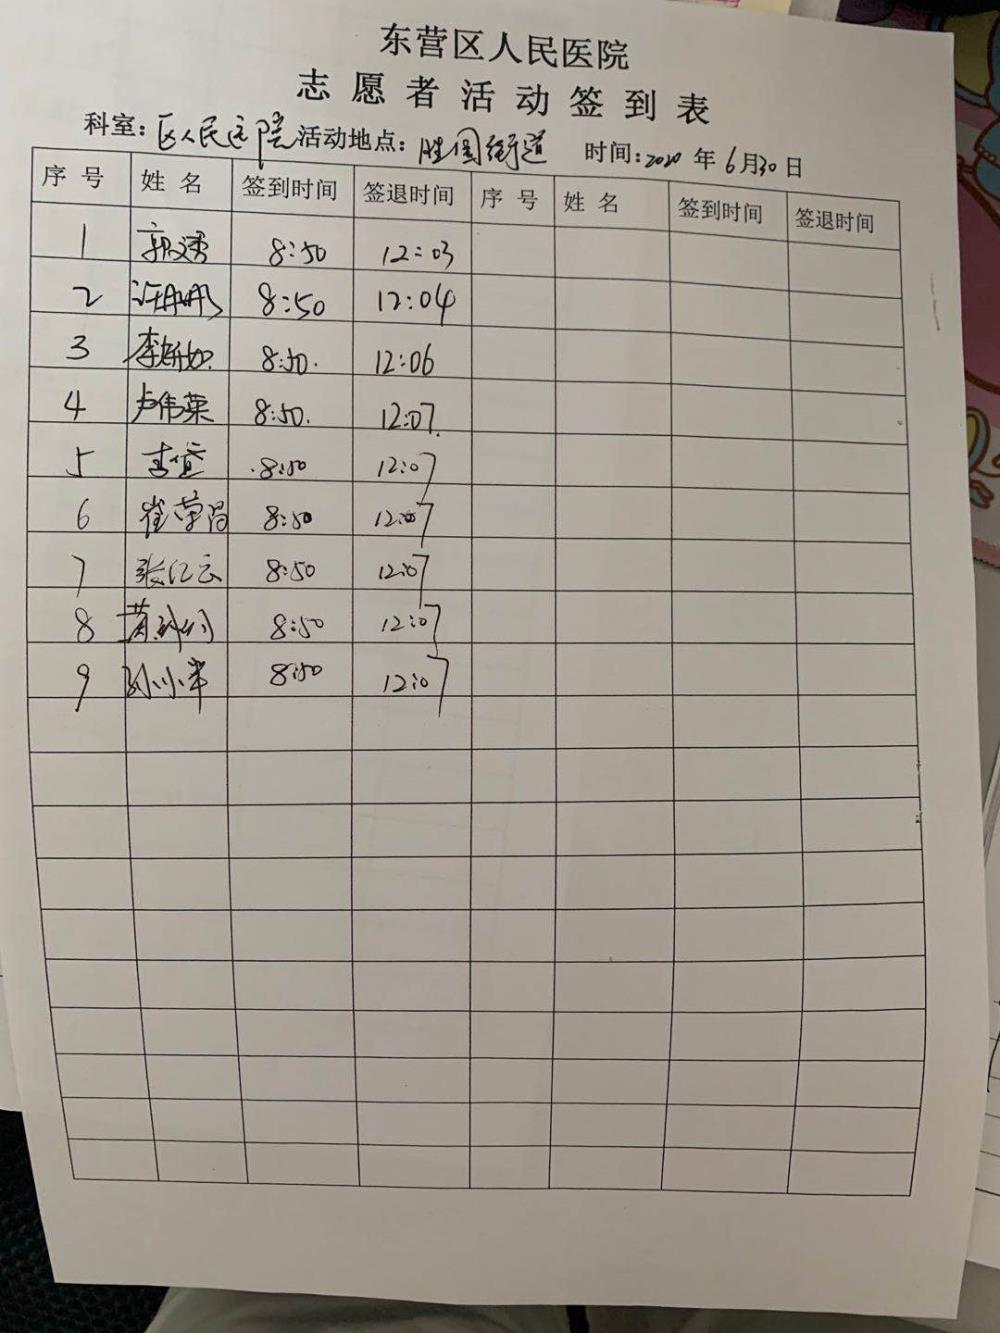 东营区人民医院
志愿者活动签到表
科室：区人民医院 活动地点：胜园街道 时间：2020 年 6月30日
序号 姓名 签到时间 签退时间 序号 姓名 签到时间 签退时间
1 8:50 12:03
2 许彤彤 8:50 12:04
3 8:50. 12:06
4 卢伟荣 8:50. 12:07.
5 8:50 12:07
6 崔荣昌 8:50 12:07
7 张亿云 8:50 12:07
8 8:50 12:07
9 8:50 12:07